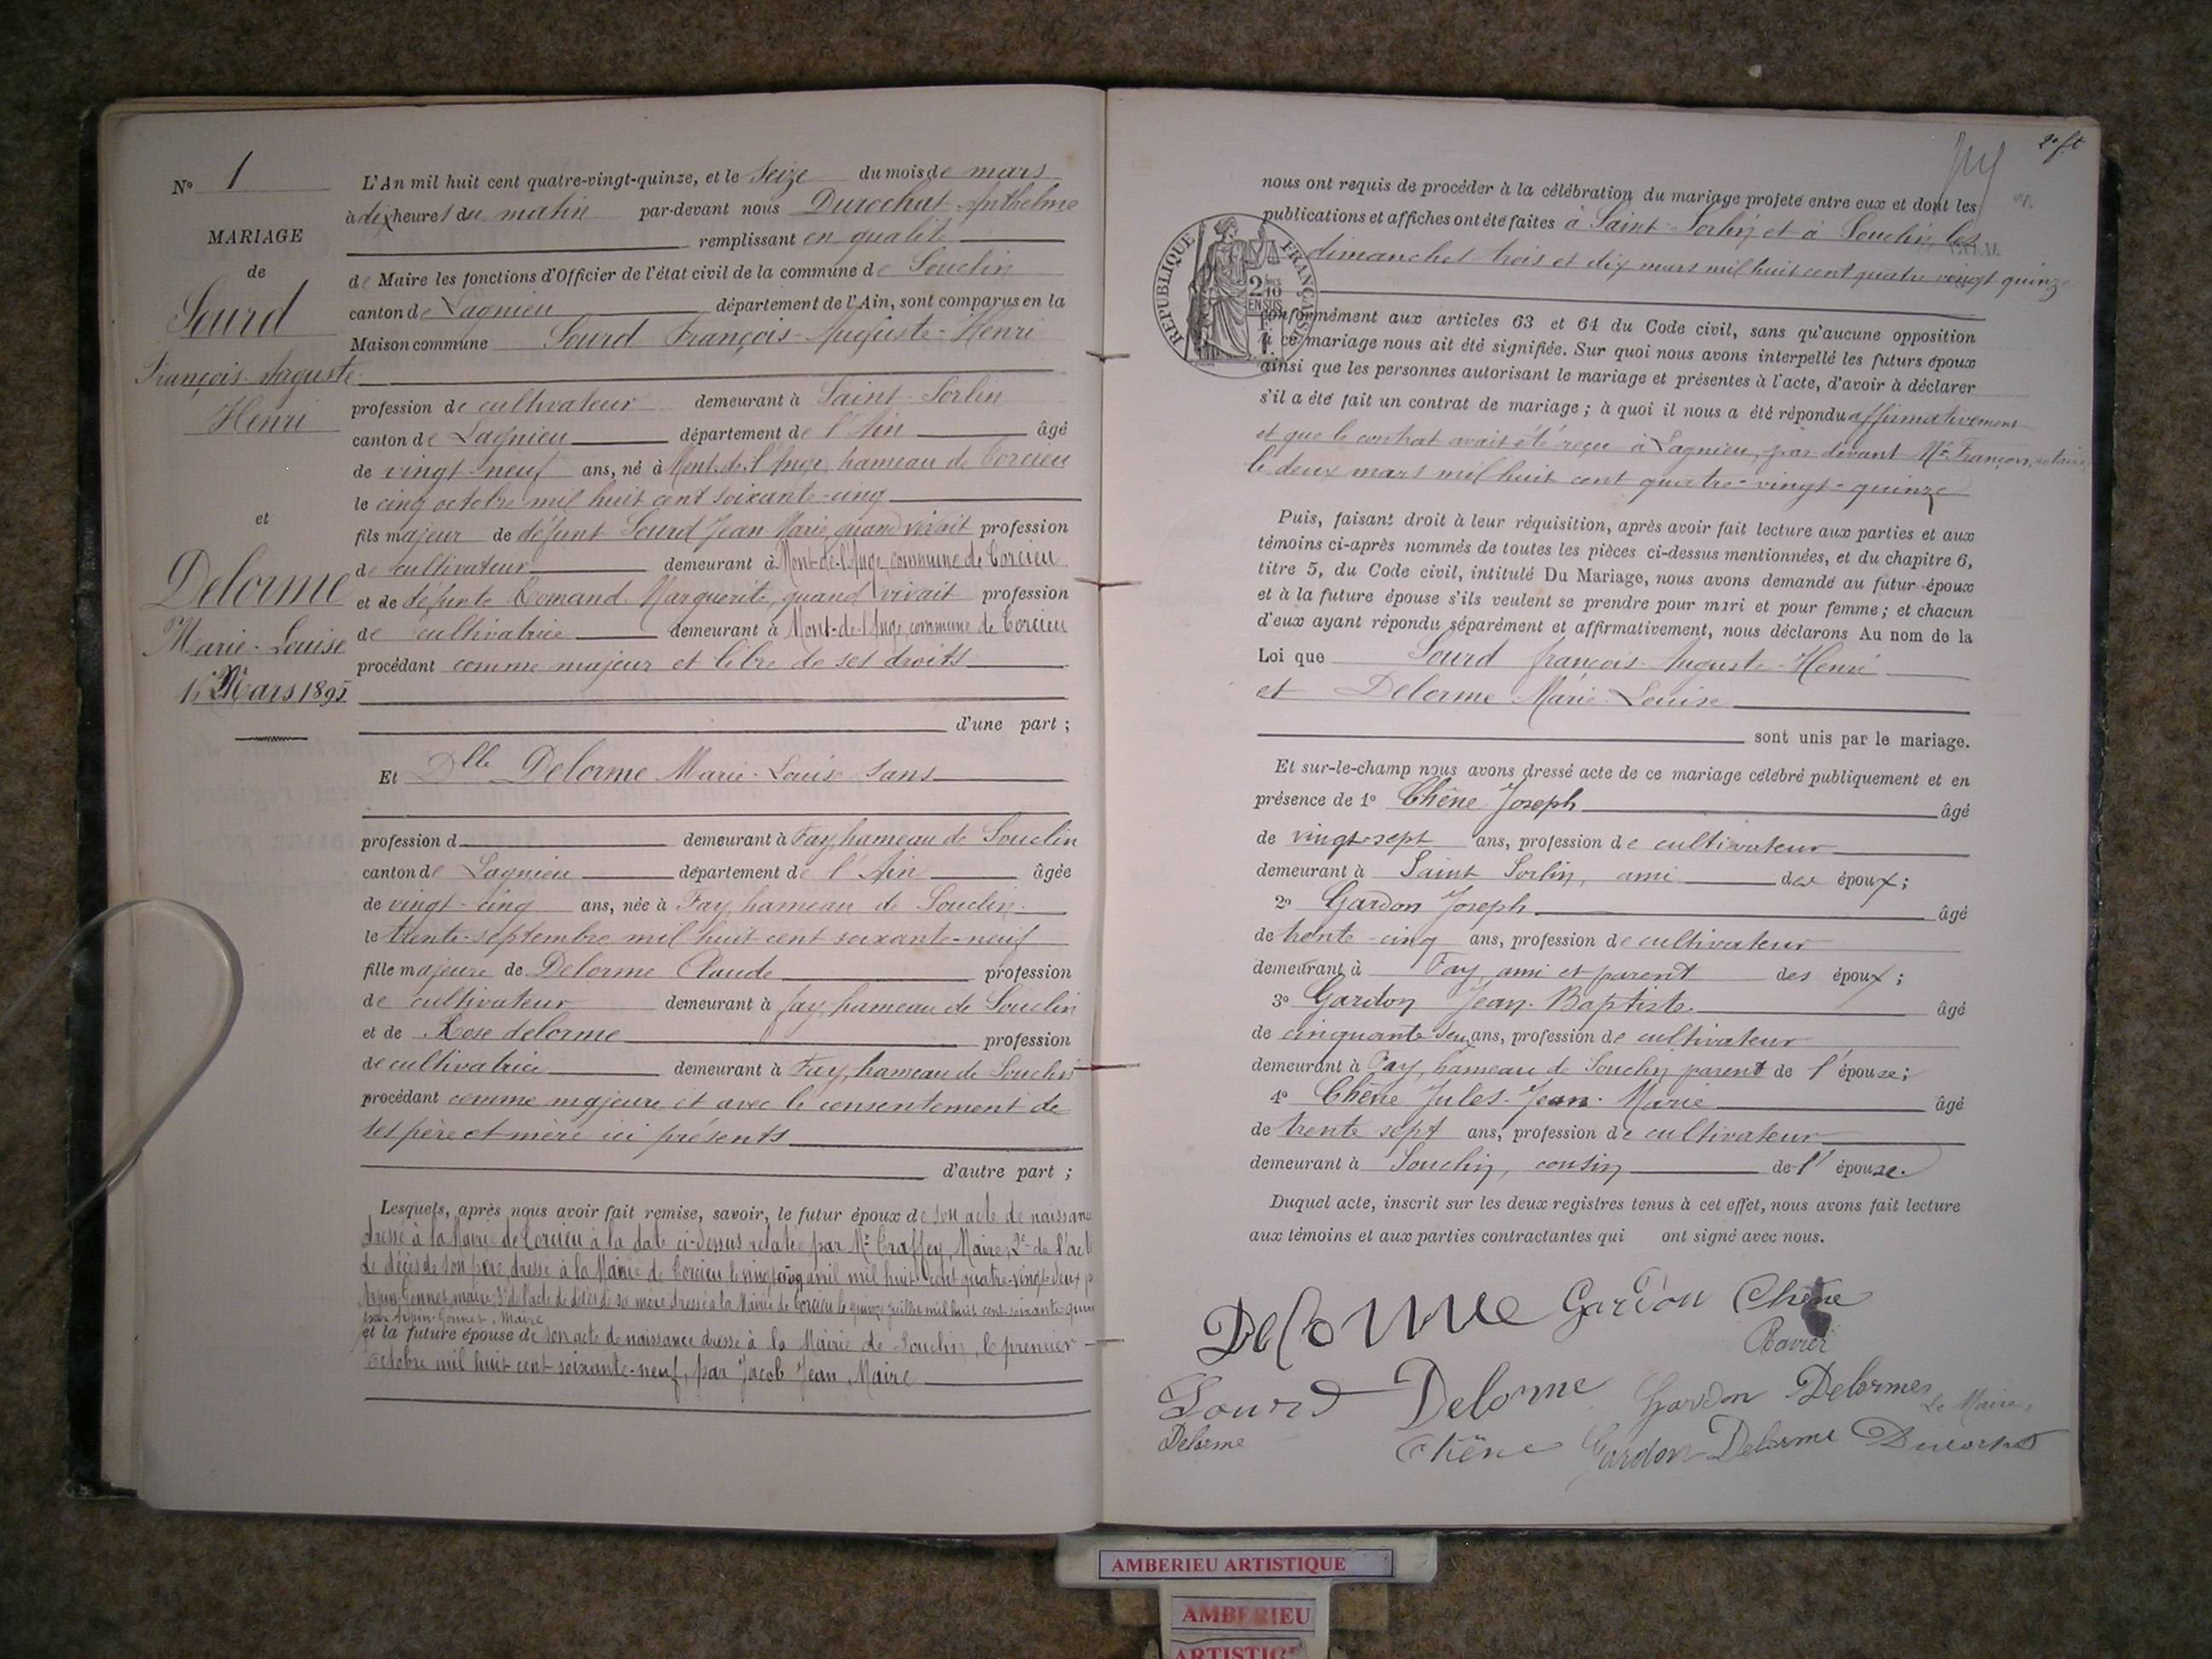 N° 1
MARIAGE
de
Sourd
François-Auguste
Henri
et
Delorme
Marie-Louise
16 Mars 1895
L'An mil huit cent quatre-vingt-quinze, et le Seize du mois de mars
à dix heures du matin par-devant nous Durochat Anthelme
remplissant en qualité
de Maire les fonctions d'Officier de l'état civil de la commune de Souclin
canton de Lagnieu département de l'Ain, sont comparus en la
Maison commune Sourd François-Auguste-Henri
profession de cultivateur demeurant à Saint-Sorlin
canton de Lagnieu département de l'Ain âgé
de vingt-neuf ans, né à Mont-de-l'Ange, hameau de Torcieu
le cinq octobre mil huit cent soixante-cinq
fils majeur de défunt Sourd Jean-Marie, quand vivait profession
de cultivateur demeurant à Mont-de-l'Ange, commune de Torcieu
et de défunte Romand Marguerite, quand vivait profession
de cultivatrice demeurant à Mont-de-l'Ange, commune de Torcieu
procédant comme majeur et libre de ses droits
d'une part ;
Et Dlle Delorme Marie-Louise sans
profession d demeurant à Fay, hameau de Souclin
canton de Lagnieu département de l'Ain âgée
de vingt-cinq ans, née à Fay, hameau de Souclin
le trente-septembre mil huit cent soixante-neuf
fille majeure de Delorme Claude profession
de cultivateur demeurant à fay, hameau de Souclin
et de Rose delorme profession
de cultivatrice demeurant à Fay, hameau de Souclin
procédant comme majeure et avec le consentement de
ses père et mère ici présents
d'autre part ;
Lesquels, après nous avoir fait remise, savoir, le futur époux de son acte de naissance
dressé à la Mairie de Torcieu à la date ci-dessus relatée par Mr Maire, 2° de l'acte
de décès de son père, dressé à la Mairie de Torcieu le vingt cinq avril mil huit cent quatre-vingt-deux
maire; 3° de l'acte de décès de sa mère dressé à la Mairie de Torcieu le quinze juillet mil huit cent soixante
par Arpin-Gonnet, Maire
et la future épouse de son acte de naissance dressé à la Mairie de Souclin, le premier
octobre mil huit cent soixante-neuf, par Jacob Jean, Maire
2e ft
nous ont requis de procéder à la célébration du mariage projeté entre eux et dont les
publications et affiches ont été faites à Saint-Sorlin et à Souclin, les
dimanches trois et dix mars mil huit cent quatre vingt quinze
RÉPUBLIQUE FRANÇAISE
2/10
EN SUS
conformément aux articles 63 et 64 du Code civil, sans qu'aucune opposition
à ce mariage nous ait été signifiée. Sur quoi nous avons interpellé les futurs époux
ainsi que les personnes autorisant le mariage et présentes à l'acte, d'avoir à déclarer
s'il a été fait un contrat de mariage ; à quoi il nous a été répondu affirmativement
et que le contrat avait été reçu à Lagnieu, par devant Me Françon, notaire
le deux mars mil huit cent quatre-vingt-quinze
Puis, faisant droit à leur réquisition, après avoir fait lecture aux parties et aux
témoins ci-après nommés de toutes les pièces ci-dessus mentionnées, et du chapitre 6,
titre 5, du Code civil, intitulé Du Mariage, nous avons demandé au futur époux
et à la future épouse s'ils veulent se prendre pour mari et pour femme ; et chacun
d'eux ayant répondu séparément et affirmativement, nous déclarons Au nom de la
Loi que Sourd françois-Auguste-Henri
et Delorme Marie-Louise
sont unis par le mariage.
Et sur-le-champ nous avons dressé acte de ce mariage célébré publiquement et en
présence de 1° Chêne Joseph âgé
de vingt-sept ans, profession de cultivateur
demeurant à Saint Sorlin, ami des époux ;
2° Gardon Joseph âgé
de trente-cinq ans, profession de cultivateur
demeurant à Fay, ami et parent des époux ;
3° Gardon Jean-Baptiste âgé
de cinquante deux ans, profession de cultivateur
demeurant à Fay, hameau de Souclin parent de l'épouse ;
4° Chêne Jules-Jean-Marie âgé
de trente sept ans, profession de cultivateur
demeurant à Souclin, cousin de l'épouse.
Duquel acte, inscrit sur les deux registres tenus à cet effet, nous avons fait lecture
aux témoins et aux parties contractantes qui ont signé avec nous.
Delorme Gardon Chêne
Sourd Delorme Gardon Delorme Le Maire,
Delorme Chêne Gardon Delorme Durochat
AMBERIEU ARTISTIQUE
AMBERIEU
ARTISTIQUE